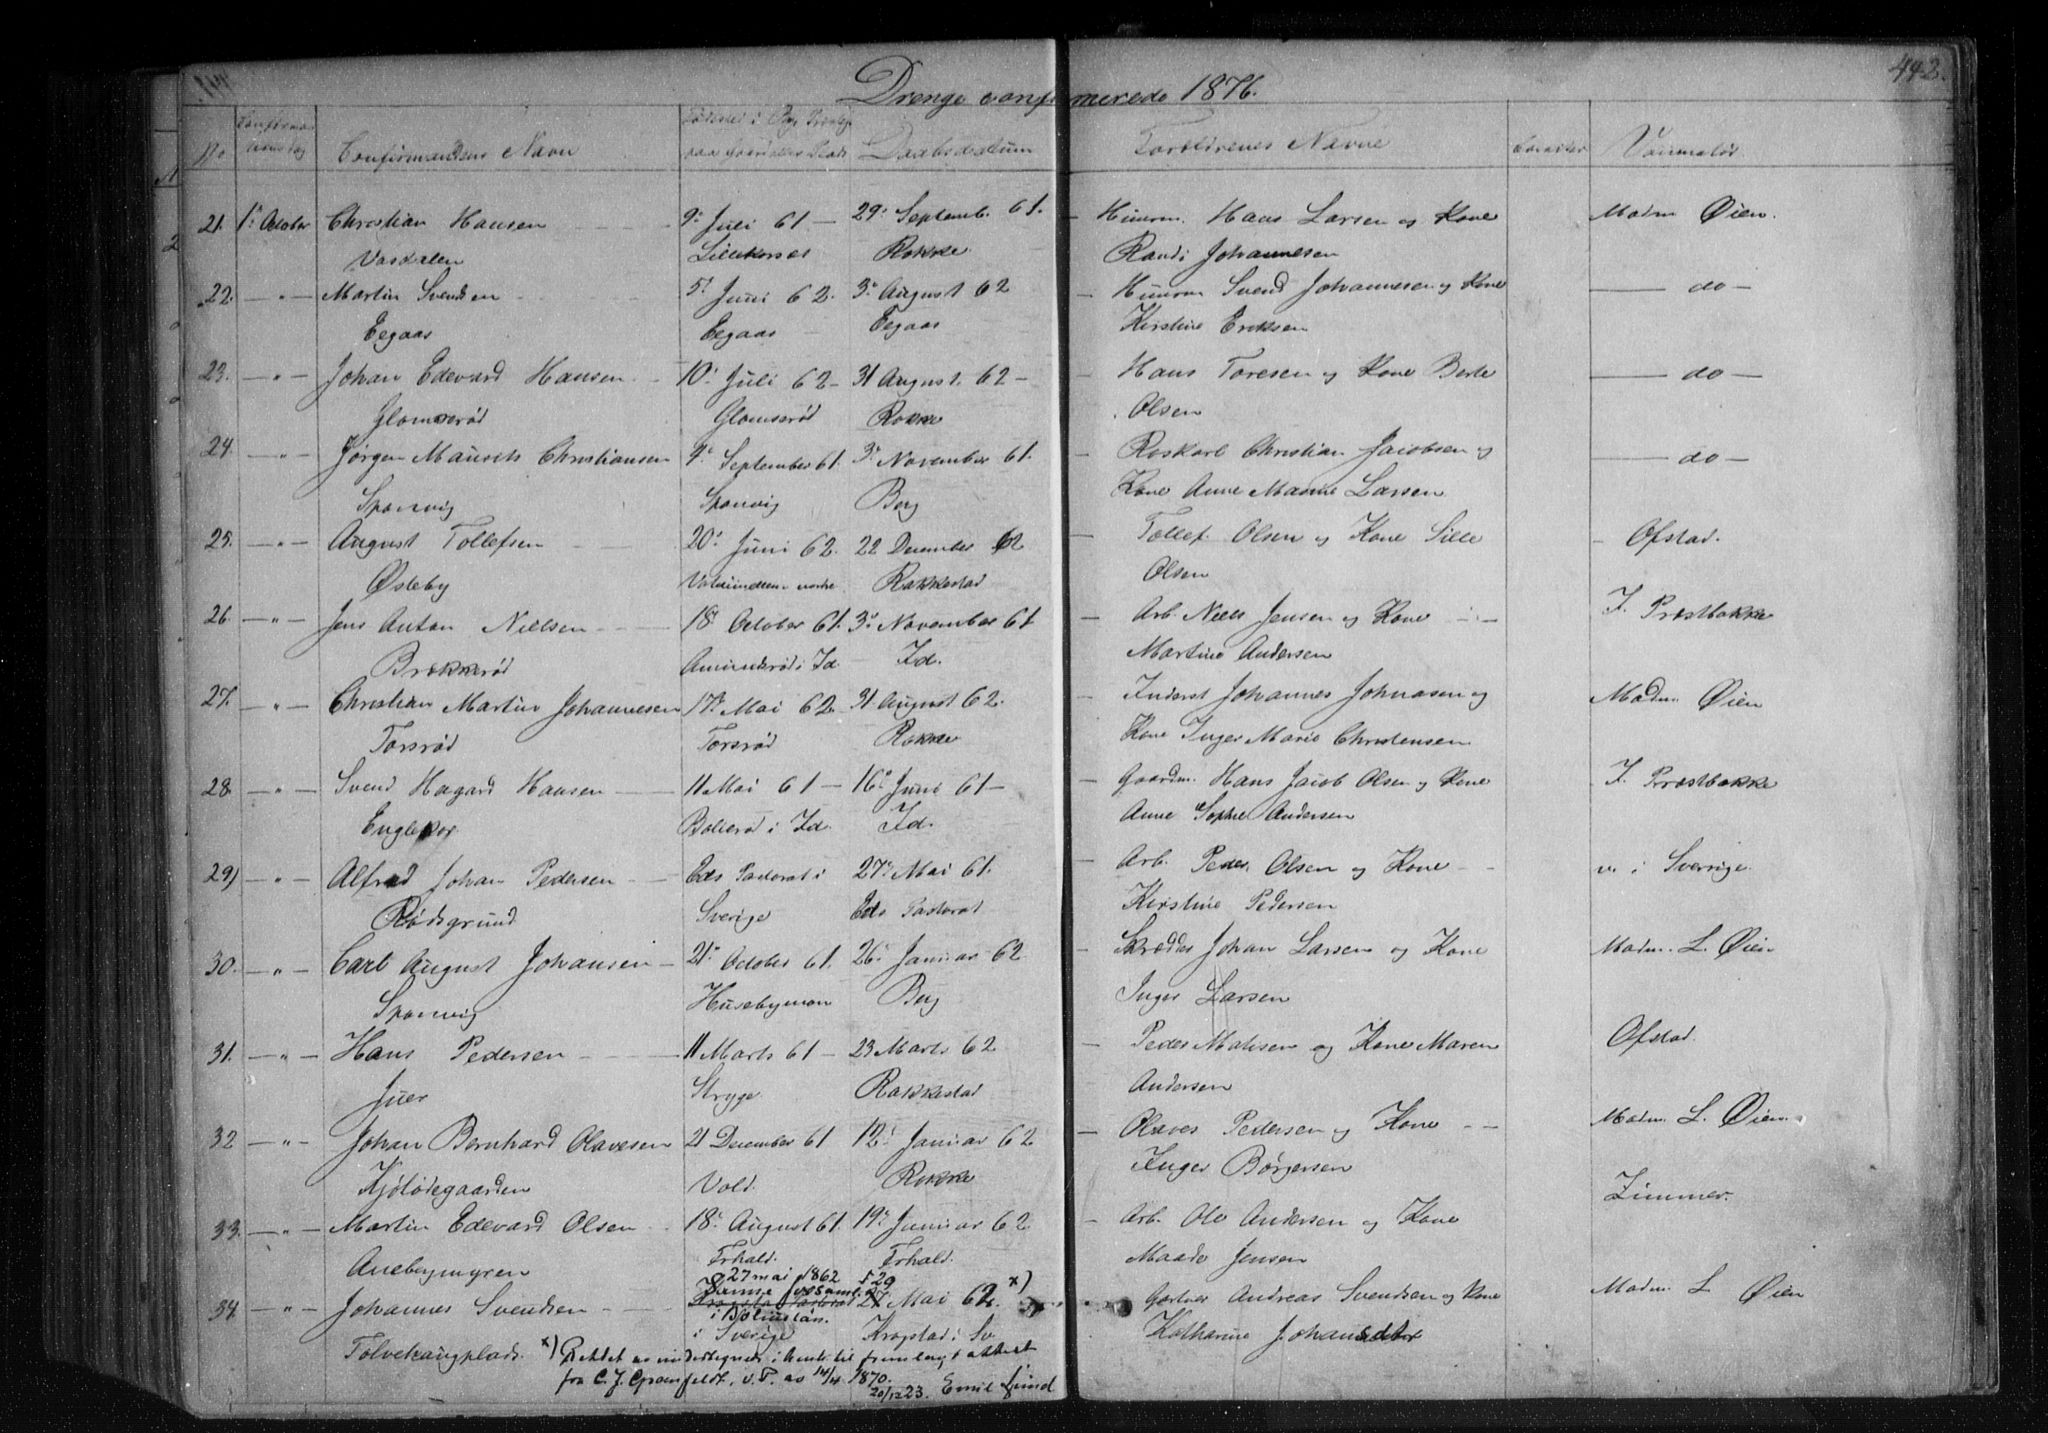 442.
Drenge confirmerede 1876.
No Confirmandens Navn Daabsdatum Forældrenes Navne
21. 1ste October Christian Hansen 9de Juli 61 — 29de Septemb. 61. — Huusm. Hans Larsen og Kone Madm. Øien.
Vasdalen Rokke Randi Johannesen
22. — " — Martin Svendsen 5te Juni 62. 3de August 62 — Huusm Svend Johannesen og Kone — do —
Eegaas Eegaas Eegaas Kirstine Eriksen
23. — " — Johan Edevard Hansen 10de Juli 62 — 31 August. 62 — — Hans Toresen og Kone Berte — do —
Glomsrød Glomsrød Rokke Olsen
24. — " — Jørgen Maurits Christiansen September 61. 3de November 61. — Christian Jacobsen og — do —
Sponvig Sponvig Berg Kone Anne Marie Larsen
25. — " — August Tollefsen 20de Juni 62. 22 December 62 — Tollef Olsen og Kone Sille — Ofstad.
Østeby Rakkestad Olsen
26. — " — Jens Anton Nielsen 18de October 61. 3de November 61 — Arb. Niels Jensen og Kone — J. Præstbakke
Brækkerød i Id Id. Martine Andersen
27. — " — Christian Martin Johannesen 17de Mai 62 31 August 62. — Inderst Johannes Johnasen og Madm. Øien
Torsrød Torsrød Rokke Kone Inger Marie Christensen
28. — " — Svend Hagard Hansen 11 Mai 61 — 16de Juni 61 — — Gaardm. Hans Jacob Olsen og Kone J. Præstbakke
Englekor i Id. Id. Anne Sophie Andersen
29) — " — Alfred Johan Pedersen Eds Pastorat i 27de Mai 61. — Arb. Peder Olsen og Kone — v. i Sverrige
Rødsgrund Sverige Eds Pastorat Kirstine Pedersen
30. — " — Carl August Johansen 21de October 61. 26de Januar 62 — Skræder Johan Larsen og Kone Madm. L. Øien
Sponvig Husebymoen Berg Inger Larsen
31. — " — Hans Pedersen 11 Marts 61 — 23 Marts 62 — Peder Matisen og Kone Maren Ofstad.
Juer Stryge Rakkestad Andersen
32 — " — Johan Bernhard Olavesen 21 December 61 12te Januar 62 — Olaves Pedersen og Kone — Madm. L. Øien.
Kjølødegaarden Vold. Rokke Inger Børgersen
33. — " — Martin Edevard Olsen 18de August 61. 19de Januar 62 — Arb. Ole Andersen og Kone Zimmer.
Anebymyren Frhald. Frhald. Maade Jensen
27 mai 1862 29
34. — " — Johannes Svendsen Mai 62. x) Gartner Andreas Svendsen og Kone Madm. L Øien
Tolvekaugplads. i Sverige Krogstad i Sv. Katharine Johansdtr
x) Rettet av undertegnede i henh. til fremlagt attest
fra C. J. v. P. av 14/4 1870.
20/12 23. Emil Lund